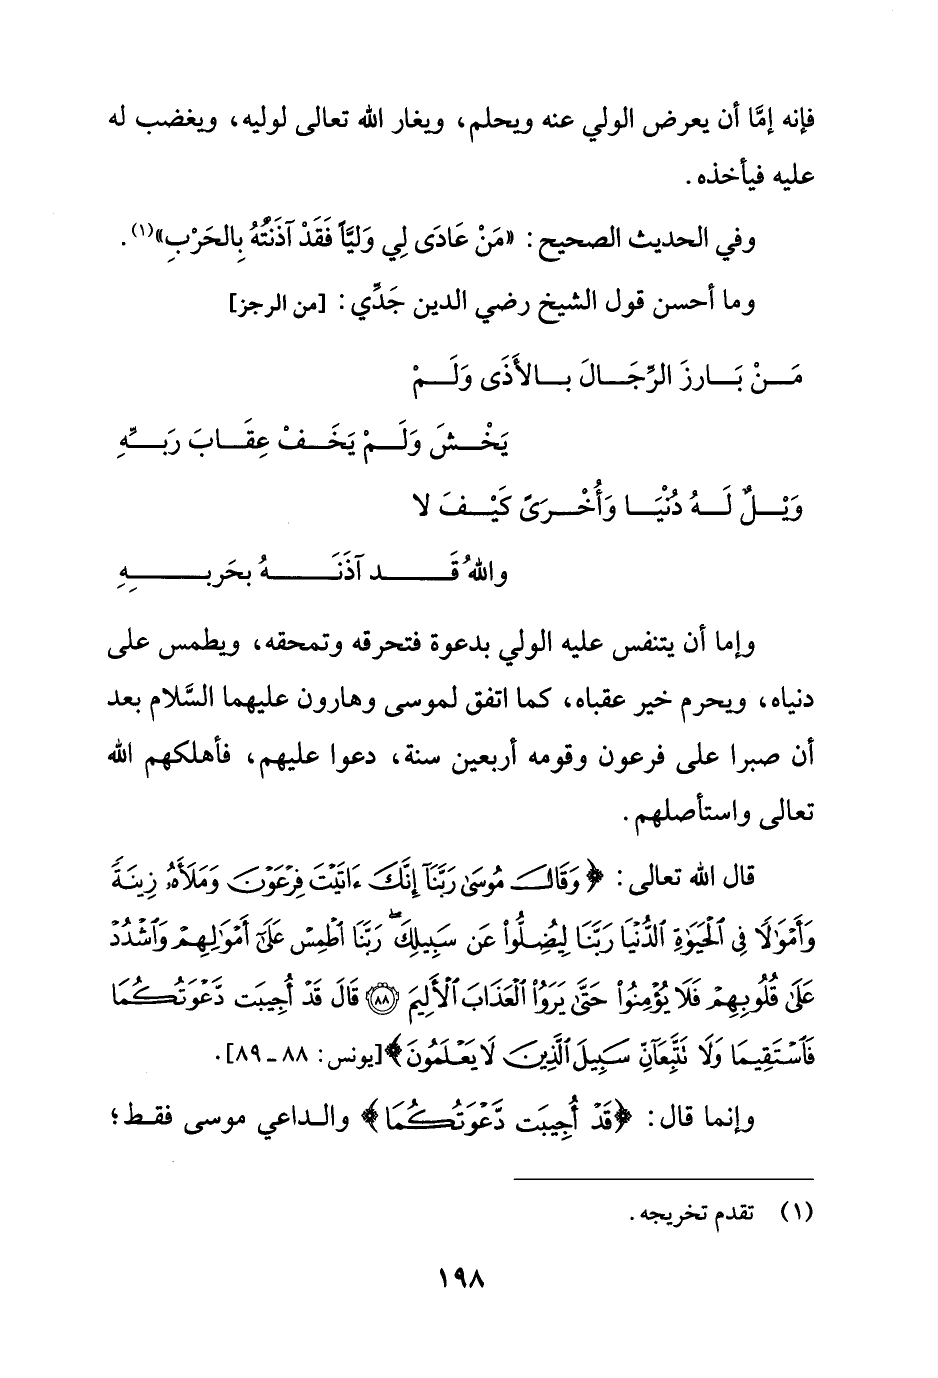 فإنه إمَّا أن يعرض الولي عنه ويحلم، ويغار الله تعالى لوليه، ويغضب له
عليه فيأخذه.
وفي الحديث الصحيح: «مَنْ عَادَى لِي وَلِيَّاً فَقَدْ آذَنْتُهُ بِالحَرْبِ»(١).
وما أحسن قول الشيخ رضي الدين جَدِّي: [من الرجز]
مَـنْ بَـارزَ الرِّجَـالَ بـالأَذَى وَلَـمْ
يَخْـشَ وَلَـمْ يَخَـفْ عِقَـابَ رَبـِّهِ
وَيْـلٌ لَـهُ دُنْيَـا وَأُخْـرَىً كَيْـفَ لا
واللهُ قَـد آذَنَـهُ بحَربـِهِ
وإما أن يتنفس عليه الولي بدعوة فتحرقه وتمحقه، ويطمس على
دنياه، ويحرم خير عقباه، كما اتفق لموسى وهارون عليهما السَّلام بعد
أن صبرا على فرعون وقومه أربعين سنة، دعوا عليهم، فأهلكهم الله
تعالى واستأصلهم.
قال الله تعالى: ﴿وَقَالَ مُوسَىٰ رَبَّنَآ إِنَّكَ ءَاتَيْتَ فِرْعَوْنَ وَمَلَأَهُۥ زِينَةً
وَأَمْوَٰلًا فِى ٱلْحَيَوٰةِ ٱلدُّنْيَا رَبَّنَا لِيُضِلُّوا۟ عَن سَبِيلِكَ ۖ رَبَّنَا ٱطْمِسْ عَلَىٰٓ أَمْوَٰلِهِمْ وَٱشْدُدْ
عَلَىٰ قُلُوبِهِمْ فَلَا يُؤْمِنُوا۟ حَتَّىٰ يَرَوُا۟ ٱلْعَذَابَ ٱلْأَلِيمَ ﴿٨٨﴾ قَالَ قَدْ أُجِيبَت دَّعْوَتُكُمَا
فَٱسْتَقِيمَا وَلَا تَتَّبِعَآنِّ سَبِيلَ ٱلَّذِينَ لَا يَعْلَمُونَ﴾[يونس: ٨٨ ـ ٨٩].
وإنما قال: ﴿قَدْ أُجِيبَت دَّعْوَتُكُمَا﴾ والـداعي موسى فقـط؛
(١) تقدم تخريجه.
١٩٨